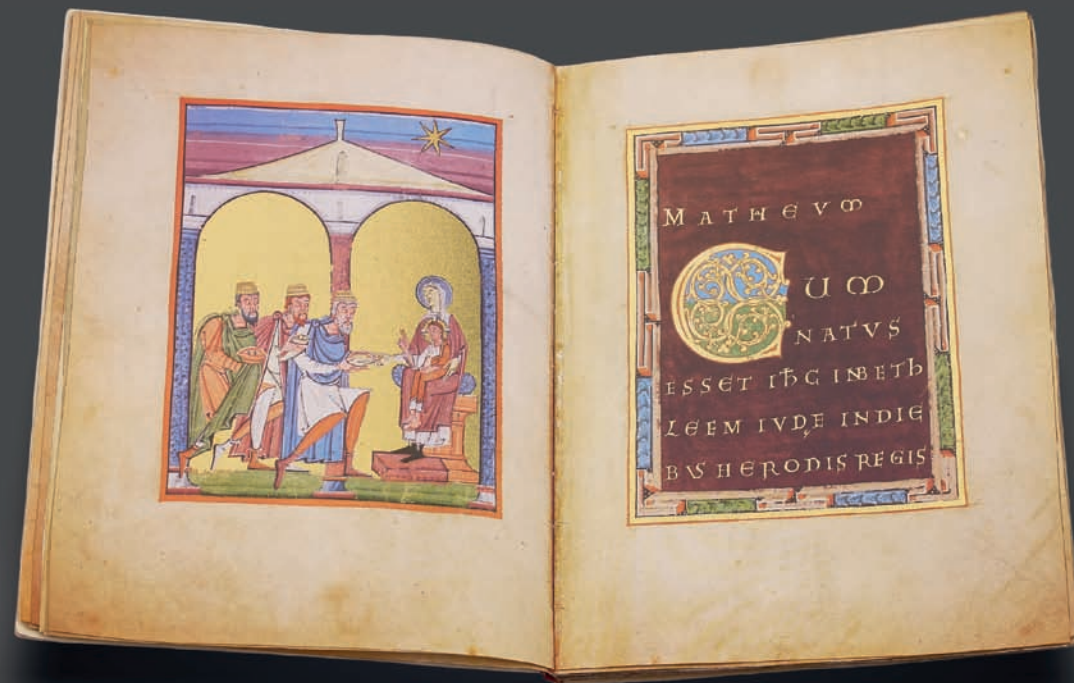 MATHEUM
CUM
NATUS
ESSET IHC IN BETH
LEEM IVDĘ INDIE
BUS HERODIS REGIS